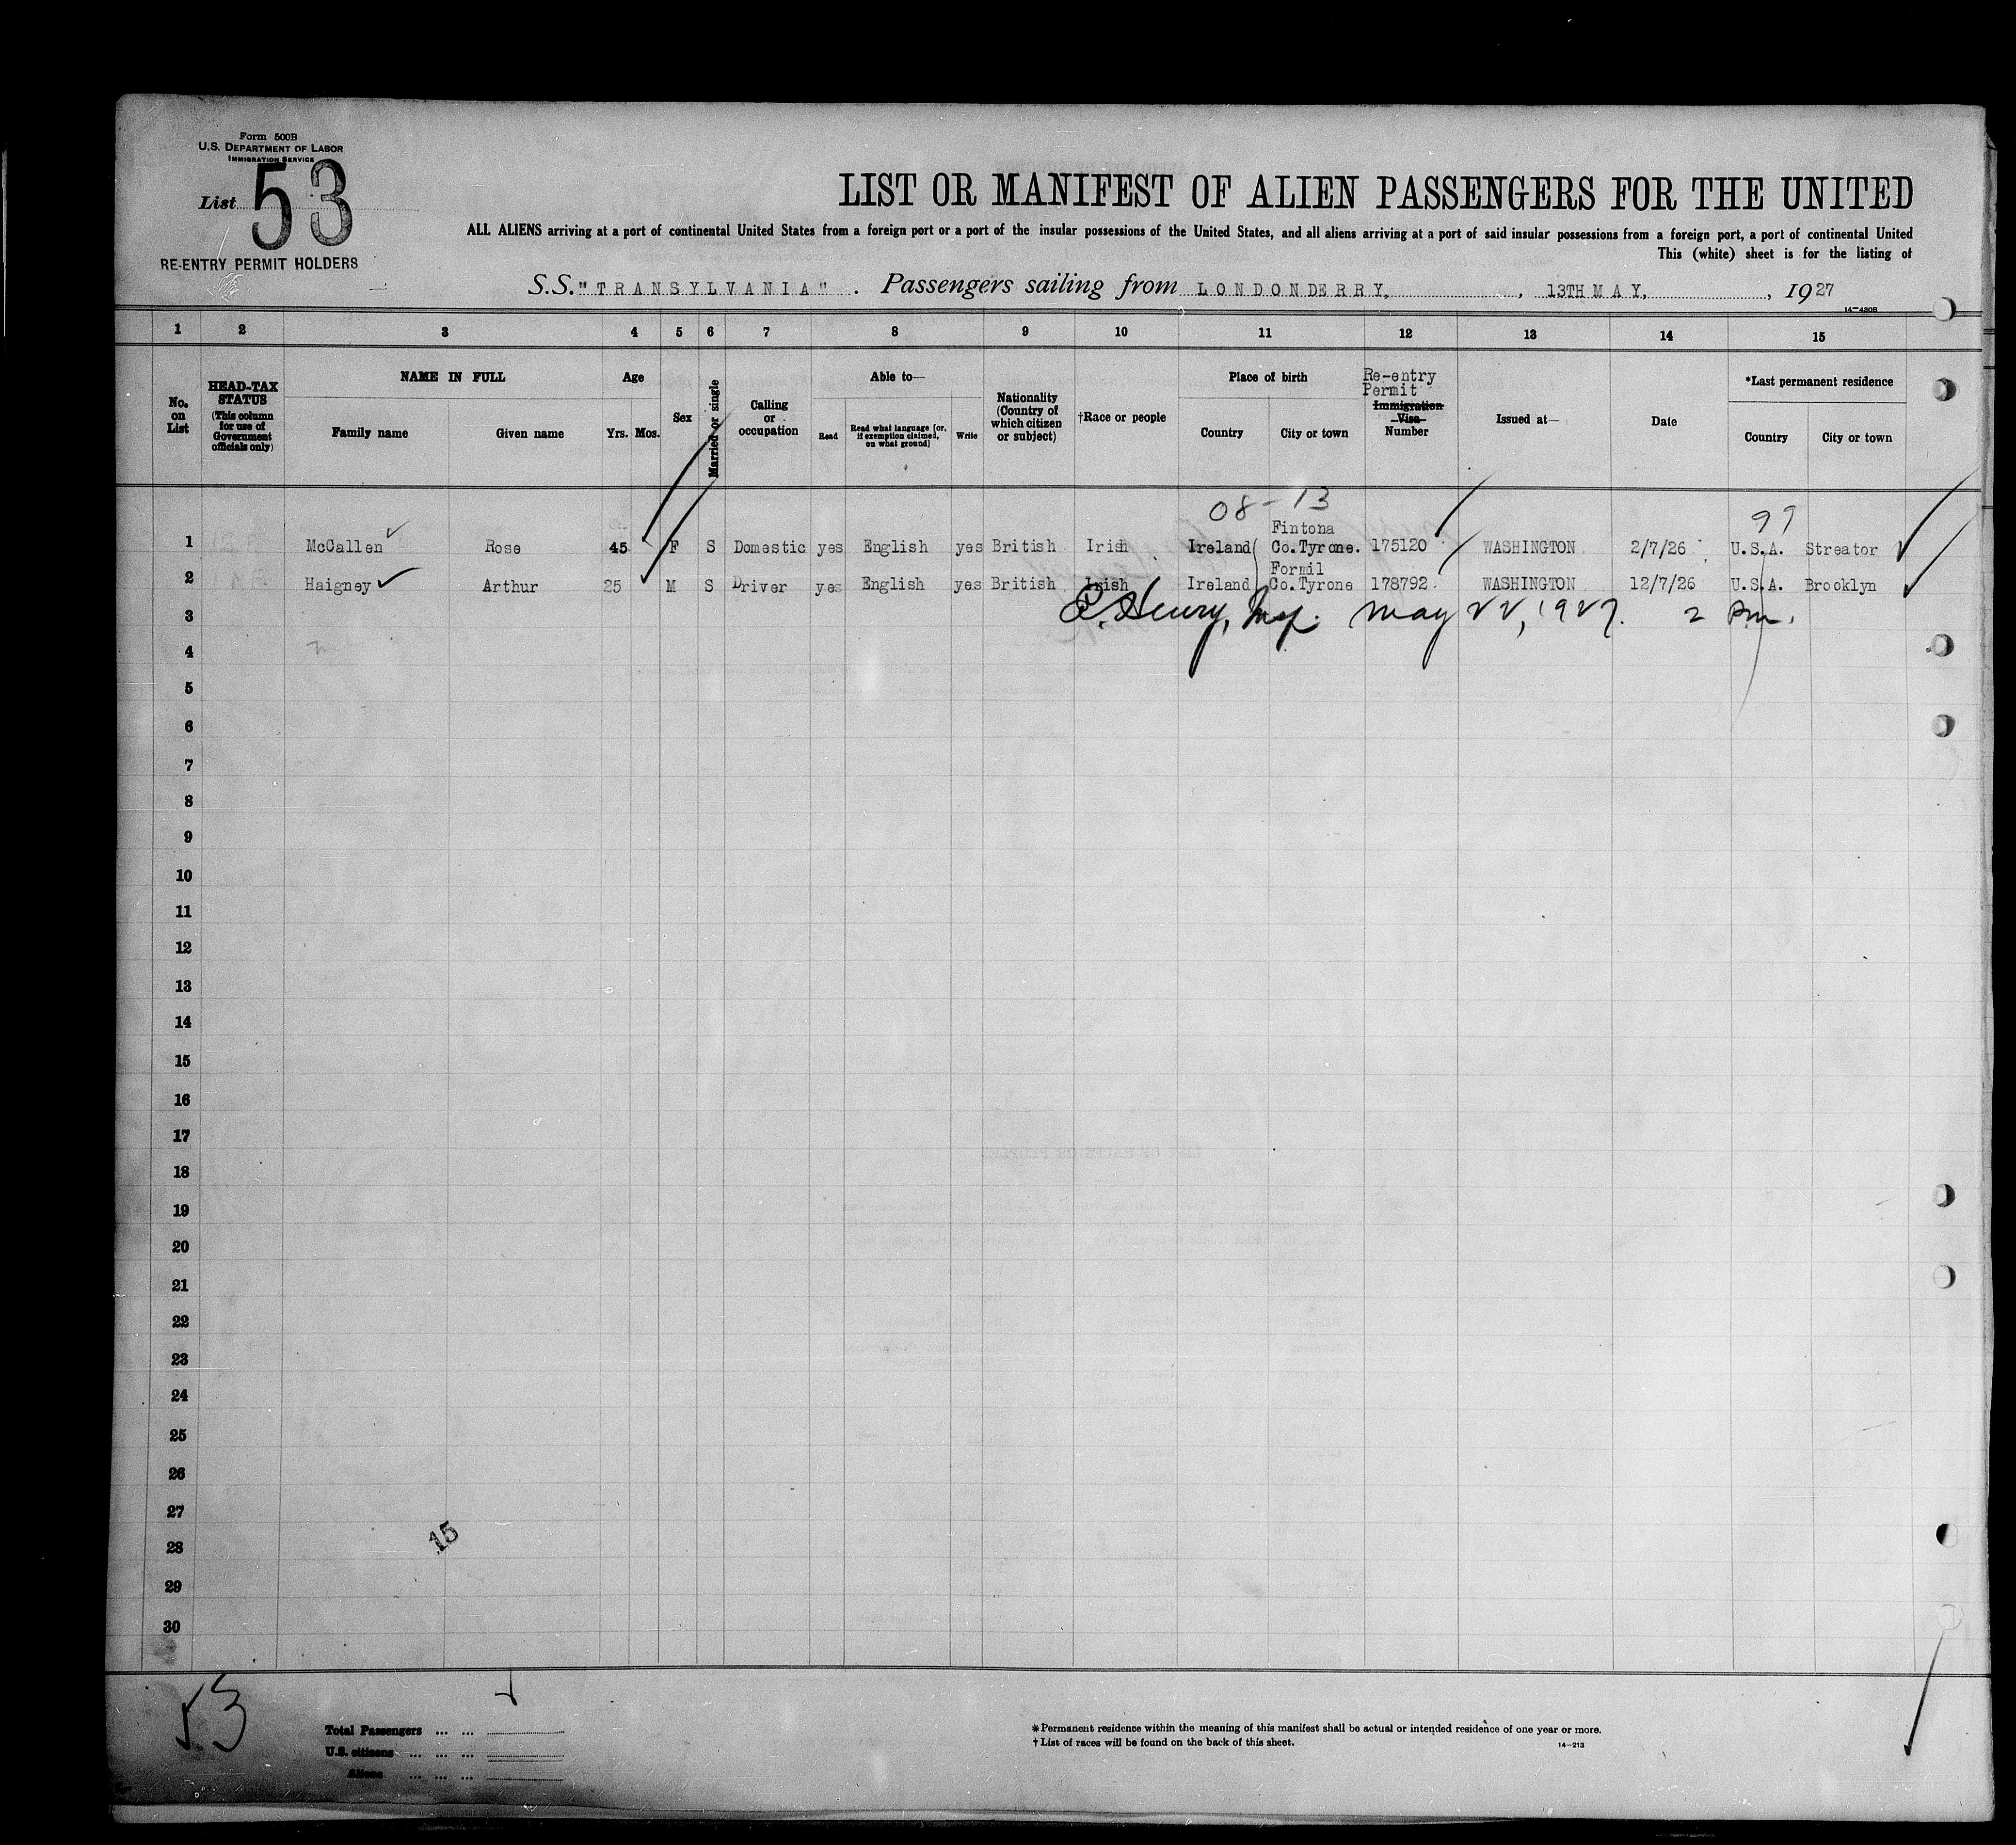 Form 500B
U.S. DEPARTMENT OF LABOR
IMMIGRATION SERVICE
List 53
RE-ENTRY PERMIT HOLDERS
LIST OR MANIFEST OF ALIEN PASSENGERS FOR THE UNITED
ALL ALIENS arriving at a port of continental United States from a foreign port or a port of the insular possessions of the United States, and all aliens arriving at a port of said insular possessions from a foreign port, a port of continental United
This (white) sheet is for the listing of
S.S. "TRANSYLVANIA". Passengers sailing from LONDONDERRY, , 13TH MAY, , 1927
14-430B
1 2 3 4 5 6 7 8 9 10 11 12 13 14 15
No. on List
HEAD-TAX STATUS (This column for use of Government officials only)
NAME IN FULL
Family name Given name
Age
Yrs. Mos.
Sex
Married or single
Calling or occupation
Able to—
Read
Read what language [or, if exemption claimed, on what ground]
Write
Nationality (Country of which citizen or subject)
†Race or people
Place of birth
Country City or town
Re-entry Permit
Immigration Visa
Number
Issued at—
Date
*Last permanent residence
Country City or town
08-13
Fintona 99
1 McCallen Rose 45 F S Domestic yes English yes British Irish Ireland Co.Tyrone. 175120 WASHINGTON 2/7/26 U.S.A. Streator
Formil
2 Haigney Arthur 25 M S Driver yes English yes British Irish Ireland Co.Tyrone 178792 WASHINGTON 12/7/26 U.S.A. Brooklyn
3 Henry, Insp. May 22, 1927. 2 Pm.
4
5
6
7
8
9
10
11
12
13
14
15
16
17
18
19
20
21
22
23
24
25
26
27
15
28
29
30
53
Total Passengers ... ...
U.S. citizens ... ... ...
Aliens ... ... ...
*Permanent residence within the meaning of this manifest shall be actual or intended residence of one year or more.
†List of races will be found on the back of this sheet.
14-213